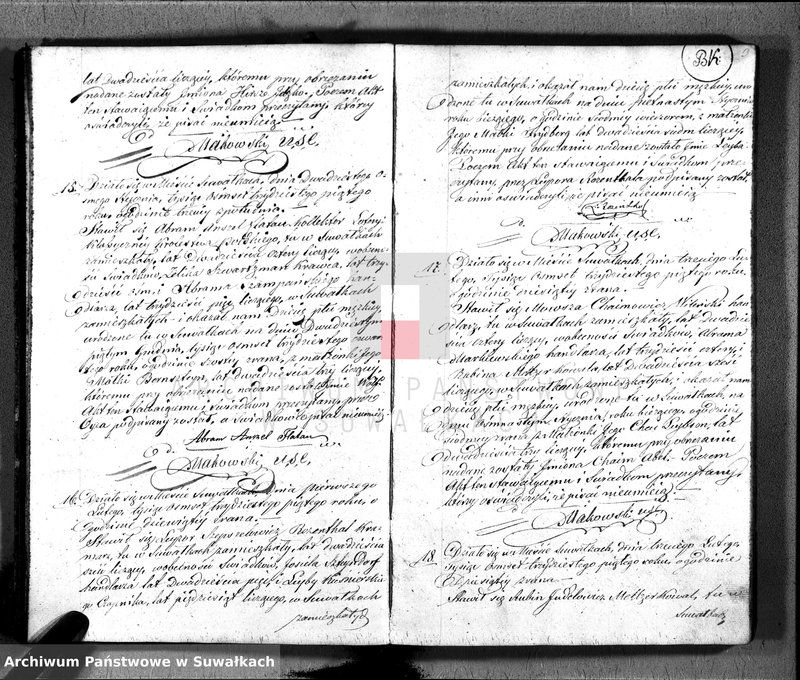 lat dwadzieścia liczący, któremu przy obrzezaniu
nadane zostały Imiona Hirsz. Poczem Akt
ten stawaiącemu i świadkom przeczytany, którzy
oświadczyli, że pisać nieumieią
Makowski USC.
15. Działo się w Mieście Suwałkach, dnia Dwudziestego o-
smego Stycznia, tysiąc osmset trzydziestego piątego
roku, o godzinie trzeciy z południa.
Stawił się Abram Anszel Flatau Kollektor Loteryi
Klassyczney Krolestwa Polskiego, tu w Suwałkach
zamieszkały, lat Dwadzieścia cztery liczący, w obecno-
ści świadków, Szwartzman krawca, lat trzy-
dzieści i Abrama Szampanskiego han-
dlarza, lat trzydzieści pięć liczącego, w Suwałkach
zamieszkałych i okazał nam Dziecię płci męzkiey,
urodzone tu w Suwałkach na dniu Dwudziestym
piątym Grudnia, tysiąc osmset trzydziestego czwar-
tego roku, o godzinie szostey zrana, z małżonki Jego
Małki Bornsztejn, lat dwadzieścia trzy liczącey,
któremu przy obrzezaniu nadane zostało Imie
Akt ten stawaiącemu i świadkom przeczytany, przez
Oyca podpisany został, a świadkowie pisać nieumieią
Abram Anszel Flatau
Makowski USC.
16. Działo się w Mieście Suwałkach dnia pierwszego
Lutego, tysiąc osmset trzydziestego piątego roku, o
godzinie dziewiątey zrana.
Stawił się Leyzor Rozenthal kra-
marz, tu w Suwałkach zamieszkały, lat dwadzieścia
liczący, w obecności świadków, Josiela Sztejndorf
handlarza lat Dwadzieścia pięć, i Leyby
go Czapnika, lat pięćdziesiąt liczącego, w Suwałkach
zamieszkałych
BK
zamieszkałych, i okazał nam dziecię płci męzkiey, uro-
dzone tu w Suwałkach na dniu piętnastym Stycznia
roku bieżącego, o godzinie siodmey wieczorem, z małżonki
Jego Małki Frydberg lat dwadzieścia siedm liczącey,
któremu przy obrzezaniu nadane zostało Imie Leyba.
Poczem Akt ten stawaiącemu i świadkom prze-
czytany, przez Leyzora Rozenthala podpisany został,
a inni oświadczyli, że pisać nieumieią
Makowski USC.
17. Działo się w Mieście Suwałkach, dnia trzeciego Lu-
tego, tysiąc osmset trzydziestego piątego roku,
o godzinie dziesiątey zrana.
Stawił się Mowsza Chaimowicz Wiliński han-
dlarz, tu w Suwałkach zamieszkały, lat dwadzie-
ścia cztery liczący, w obecności świadków, Abrama
Markiewskiego handlarza, lat trzydzieści cztery, i
Rubina Meltzer kowala, lat dwadzieścia sześć
liczącego, w Suwałkach zamieszkałych, i okazał nam
dziecię płci męzkiey, urodzone tu w Suwałkach, na
dniu osmnastym Stycznia, roku bieżącego, o godzinie
siodmey zrana, z Małżonki Jego Chai lat
dwadzieścia trzy liczącey, któremu przy obrzezaniu
nadane zostały Imiona Chaim Abel. Poczem
Akt ten stawaiącemu i świadkom przeczytany
którzy oświadczyli, że pisać nieumieią
Makowski USC.
18. Działo się w Mieście Suwałkach, dnia trzeciego Lutego,
tysiąc osmset trzydziestego piątego roku, o godzinie
dziesiątey zrana.
Stawił się Rubin Judelowicz Meltzer kowal, tu w
Suwałkach
Archiwum Państwowe w Suwałkach